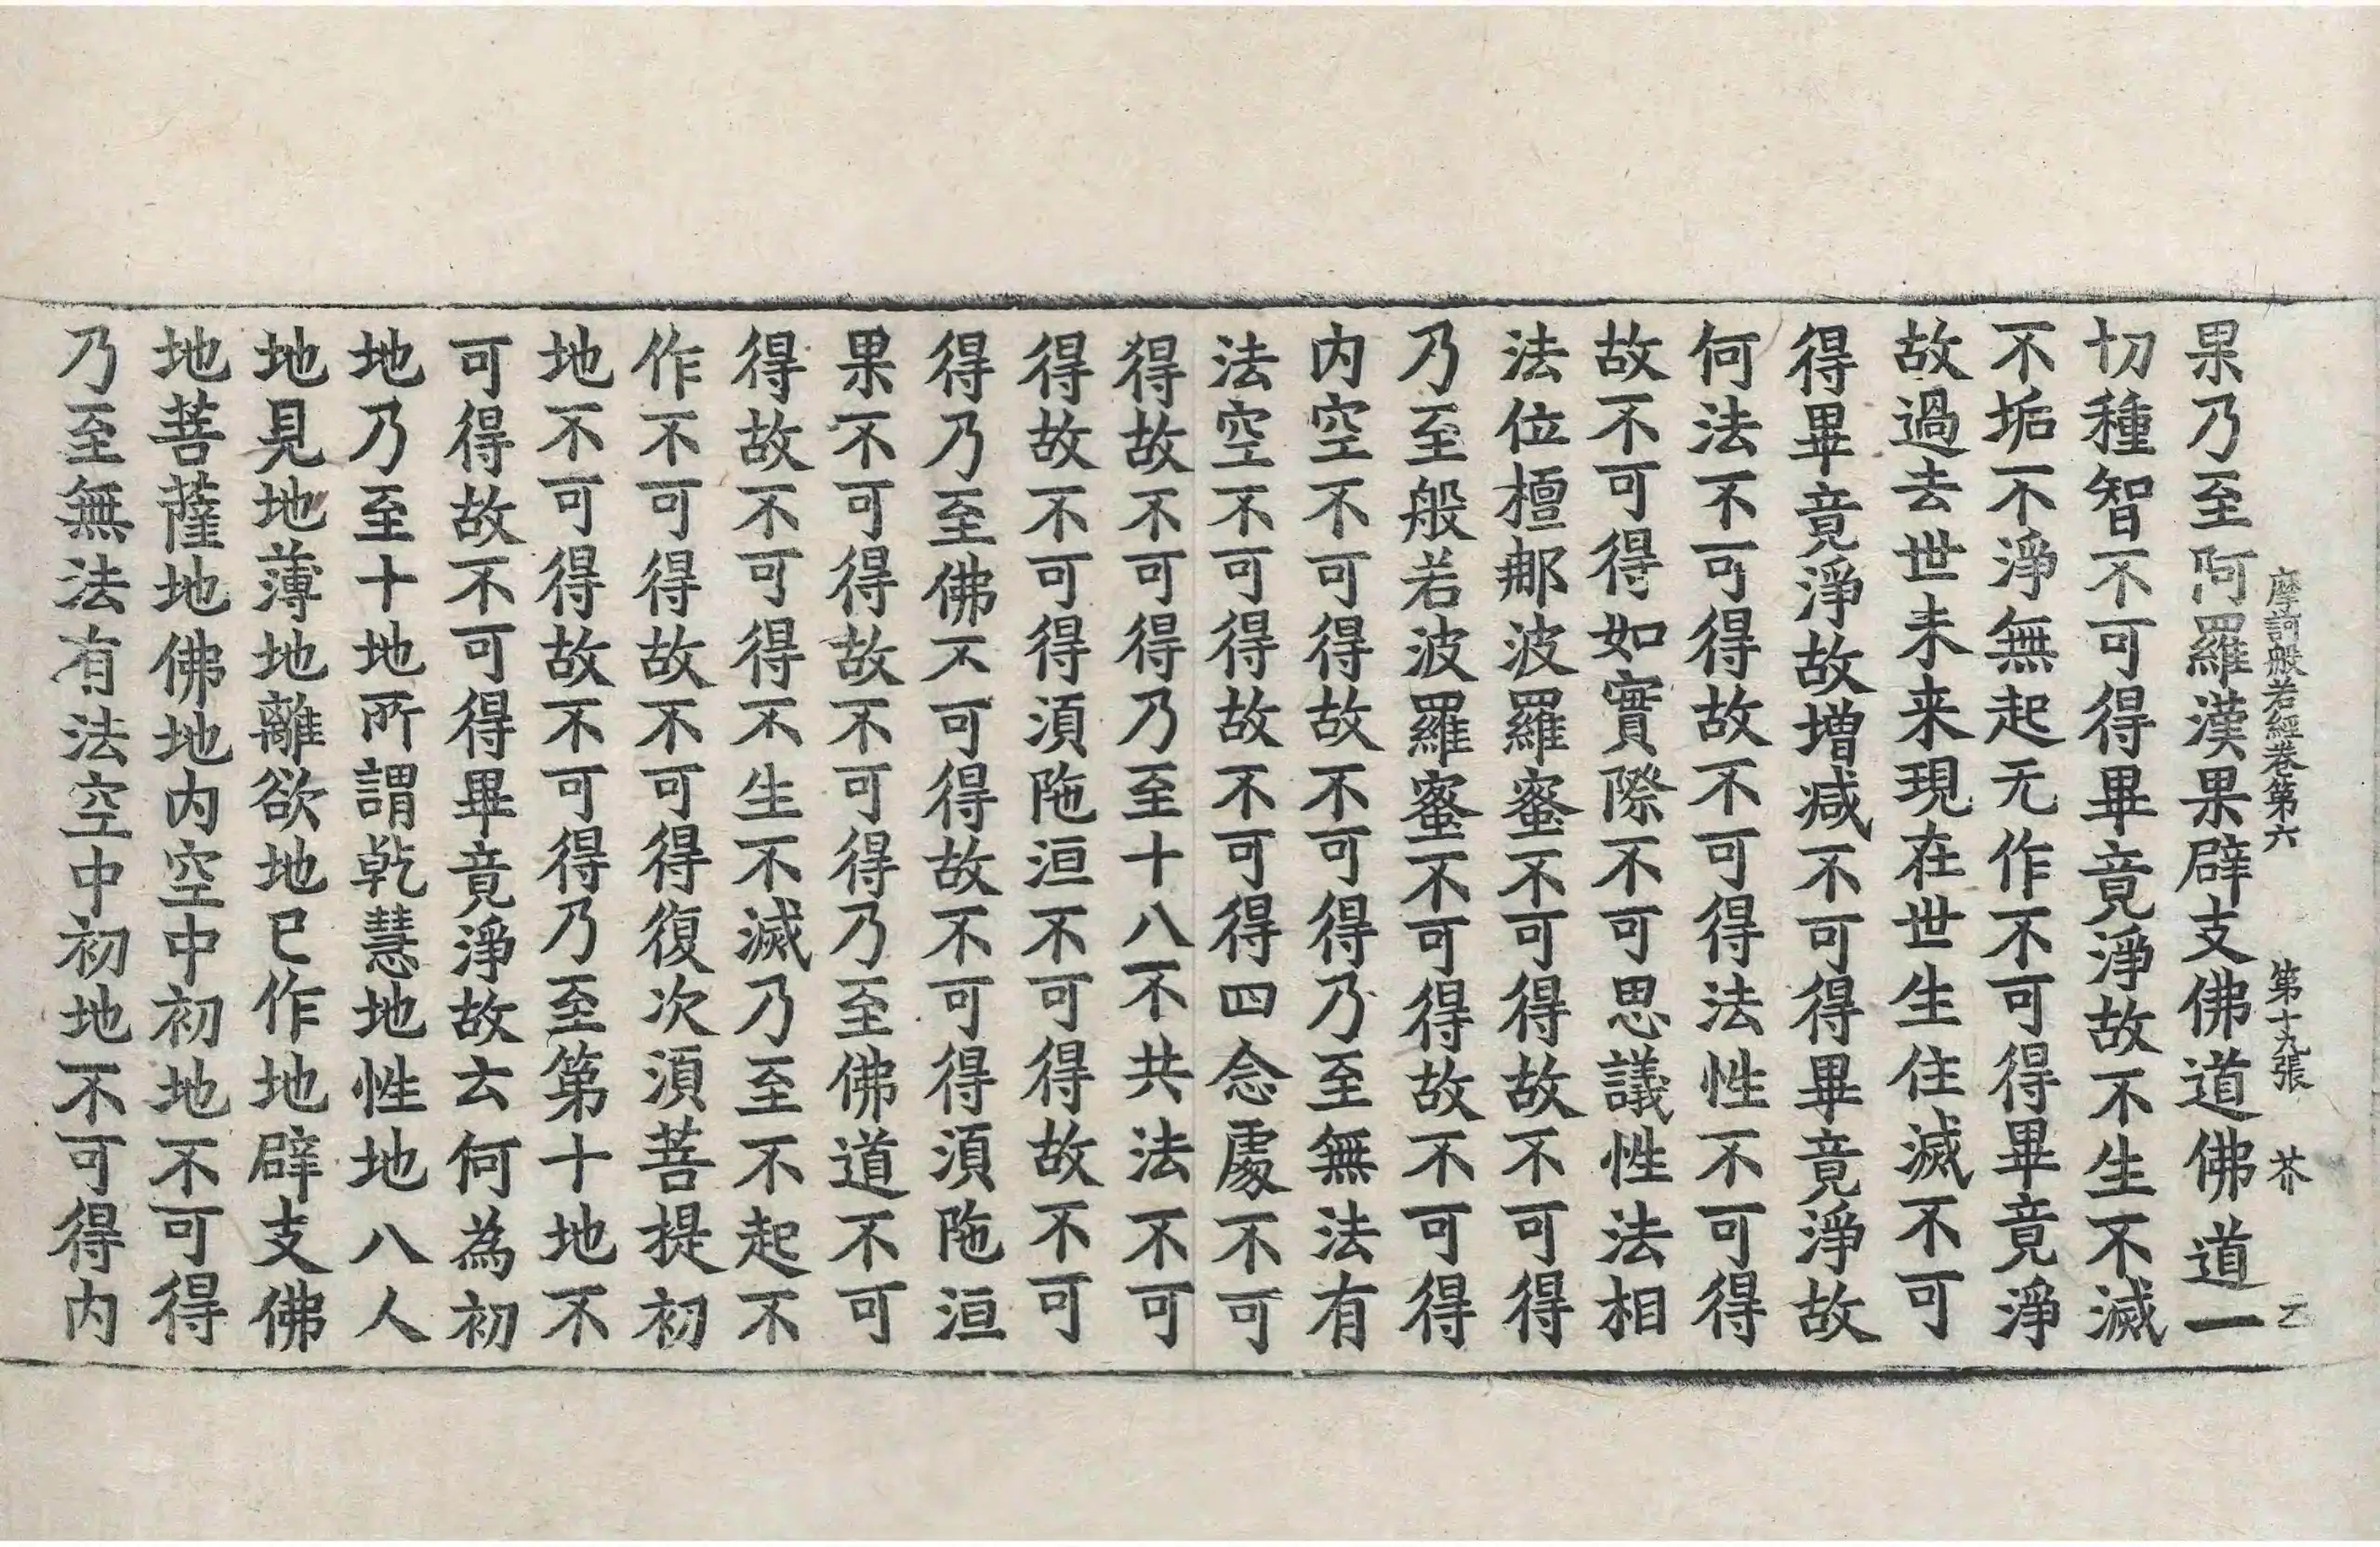 摩訶般若經卷第六　第十九張　芥
果乃至阿羅漢果辟支佛道佛道一
切種智不可得畢竟淨故不生不滅
不垢不淨無起无作不可得畢竟淨
故過去世未来現在世生住滅不可
得畢竟淨故増减不可得畢竟淨故
何法不可得故不可得法性不可得
故不可得如實際不可思議性法相
法位檀那波羅蜜不可得故不可得
乃至般若波羅蜜不可得故不可得
内空不可得故不可得乃至無法有
法空不可得故不可得四念處不可
得故不可得乃至十八不共法不可
得故不可得湏陁洹不可得故不可
得乃至佛不可得故不可得湏陁洹
果不可得故不可得乃至佛道不可
得故不可得不生不滅乃至不起不
作不可得故不可得復次湏菩提初
地不可得故不可得乃至第十地不
可得故不可得畢竟淨故云何為初
地乃至十地所謂乾慧地性地八人
地見地薄地離欲地已作地辟支佛
地菩薩地佛地内空中初地不可得
乃至無法有法空中初地不可得内